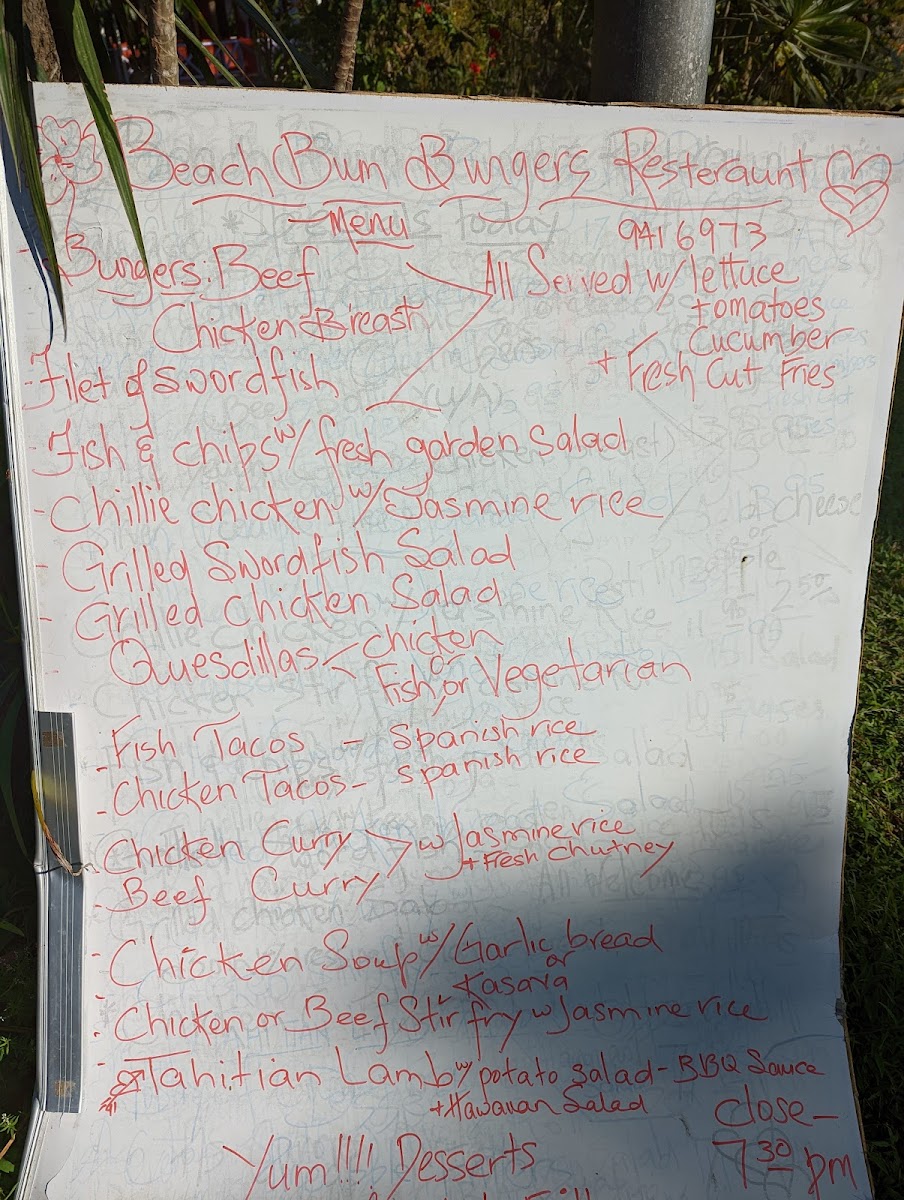 Beach Bum Burgers Resteraunt
Menu
941 6973
- Burgers: Beef
Chicken Breast
- Filet of swordfish
All Served w/ lettuce
tomatoes
Cucumber
+ Fresh Cut Fries
- Fish & chips w/ fresh garden Salad
- Chillie chicken w/ Jasmine rice
- Grilled Swordfish Salad
- Grilled Chicken Salad
Quesdillas < chicken
or
Fish, or Vegetarian
- Fish Tacos - Spanish rice
- Chicken Tacos - Spanish rice
- Chicken Curry
- Beef Curry
w Jasmine rice
+ Fresh Chutney
- Chicken Soup w/ Garlic bread
or
Kasava
- Chicken or Beef Stir fry w Jasmine rice
- Tahitian Lamb w/ potato salad - BBQ Sauce
+ Hawaiian Salad
Close -
7 30 pm
Yum!!!! Desserts